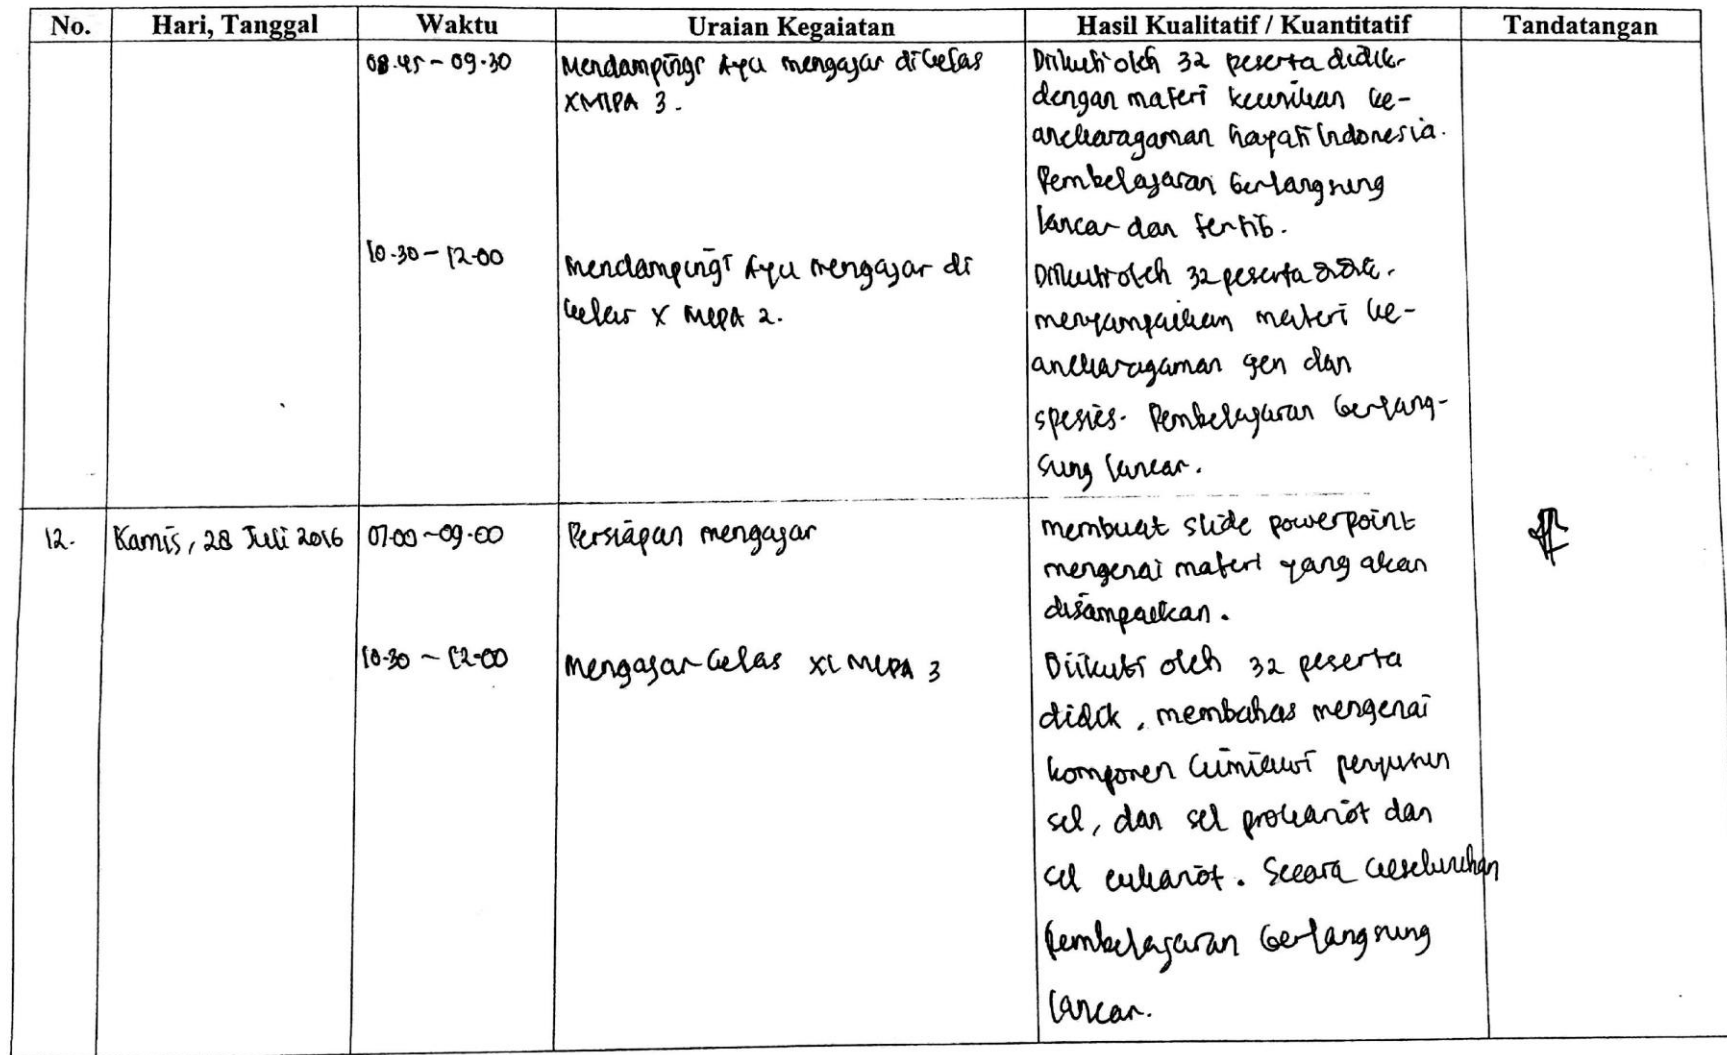 No. Hari, Tanggal Waktu Uraian Kegaiatan Hasil Kualitatif / Kuantitatif Tandatangan
08.45 - 09.30 Mendampingi Ayu mengajar di kelas Diikuti oleh 32 peserta didik
XMIPA 3. dengan materi keunikan ke-
anekaragaman hayati Indonesia.
Pembelajaran berlangsung
lancar dan tertib.
10.30 - 12.00 Mendampingi Ayu mengajar di Diikuti oleh 32 peserta didik.
kelas X MIPA 2. menyampaikan materi ke-
anekaragaman gen dan
spesies. Pembelajaran berlang-
sung lancar.
12. Kamis, 28 Juli 2016 07.00 - 09.00 Persiapan mengajar membuat slide powerpoint
mengenai materi yang akan
disampaikan.
10.30 - 12.00 Mengajar kelas XI MIPA 3 Diikuti oleh 32 peserta
didik, membahas mengenai
komponen kimiawi penyusun
sel, dan sel prokariot dan
sel eukariot. Secara keseluruhan
pembelajaran berlangsung
lancar.